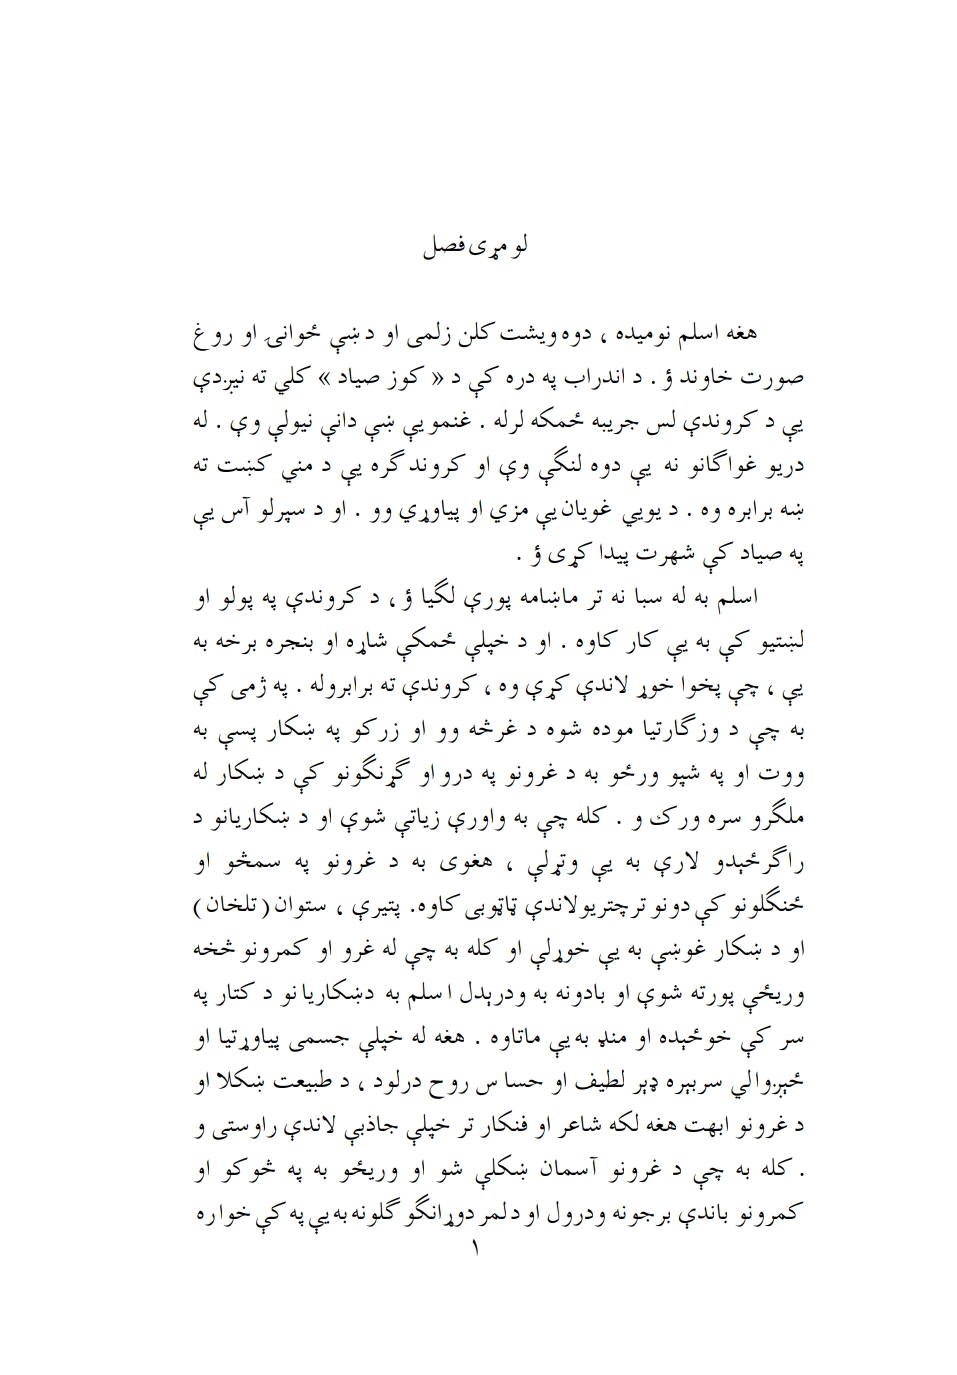 لو مړی فصل
هغه اسلم نومیده ، دوه ویشت کلن زلمی او د ښې ځوانۍ او روغ
صورت خاوند ؤ . د اندراب په دره کې د « کوز صیاد » کلي ته نیږدې
یې د کروندې لس جریبه ځمکه لرله . غنمو یې ښې دانې نیولې وې . له
دریو غواګانو نه یې دوه لنګې وې او کروند ګره یې د مني کښت ته
ښه برابره وه . د یویي غویان یې مزي او پیاوړي وو . او د سپرلو آس یې
په صیاد کې شهرت پیدا کړی ؤ .
اسلم به له سبا نه تر ماښامه پورې لګیا ؤ ، د کروندې په پولو او
لښتیو کې به یې کار کاوه . او د خپلې ځمکې شاړه او بنجره برخه به
یې ، چې پخوا خوړ لاندې کړې وه ، کروندې ته برابروله . په ژمی کې
به چې د وزګارتیا موده شوه د غرڅه وو او زرکو په ښکار پسې به
ووت او په شپو ورځو به د غرونو په درو او ګړنګونو کې د ښکار له
ملګرو سره ورک و . کله چې به واورې زیاتې شوې او د ښکاریانو د
راګرځېدو لارې به یې وتړلې ، هغوی به د غرونو په سمڅو او
ځنګلونو کې دونو ترچتریولاندې ټاټوبی کاوه. پتیرې ، ستوان ( تلخان )
او د ښکار غوښې به یې خوړلې او کله به چې له غرو او کمرونو څخه
وریځې پورته شوې او بادونه به ودرېدل اسلم به دښکاریانو د کتار په
سر کې خوځېده او منډ به یې ماتاوه . هغه له خپلې جسمی پیاوړتیا او
ځېږوالي سربېره ډېر لطیف او حساس روح درلود ، د طبیعت ښکلا او
د غرونو ابهت هغه لکه شاعر او فنکار تر خپلې جاذبې لاندې راوستی و
. کله به چې د غرونو آسمان ښکلې شو او وریځو به په څوکو او
کمرونو باندې برجونه ودرول او دلمر دوړانګو ګلونه به یې په کې خواره
۱